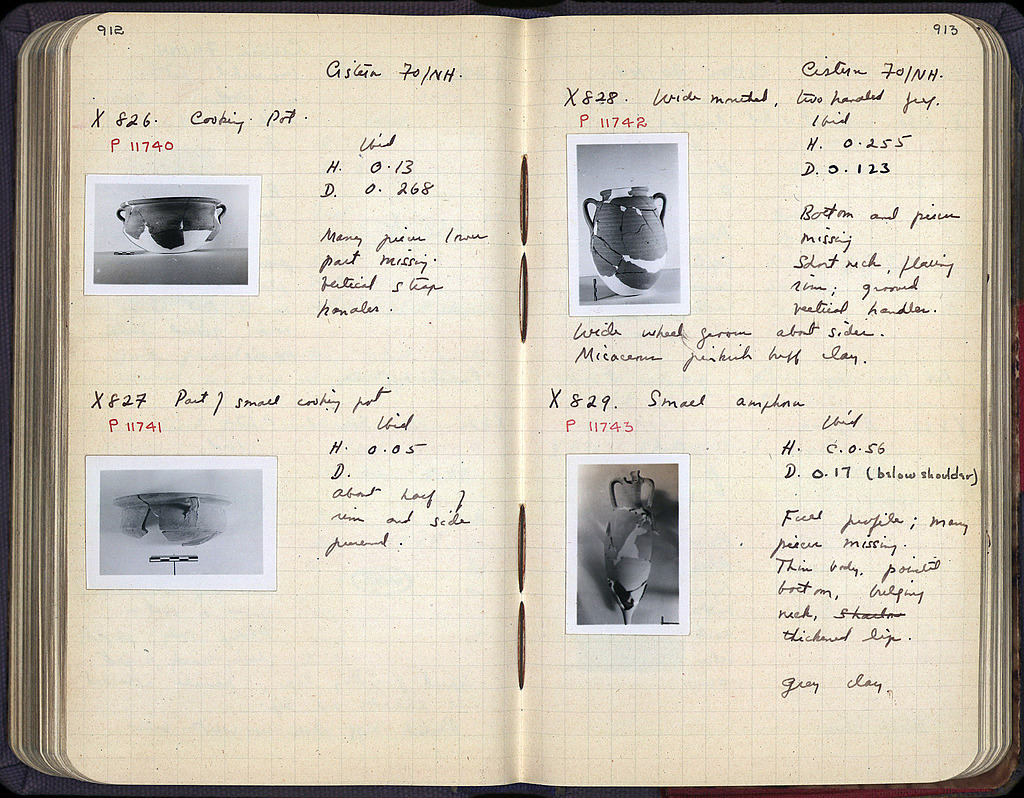 912
Cistern 70/NH.
X 826. Cooking Pot.
P 11740
Ibid
H. 0.13
D. 0.268
Many pieces lower
part missing.
Vertical strap
handles.
X 827 Part of small cooking pot
P 11741
Ibid
H. 0.05
D.
About half of
rim and side
preserved.
913
Cistern 70/NH.
X 828. Wide mouthed, two handled jug.
P 11742
Ibid
H. 0.255
D. 0.123
Bottom and pieces
missing
Short neck, flaring
rim; grooved
vertical handles.
Wide wheel grooves about sides.
Micaceous pinkish buff clay.
X 829. Small amphora
P 11743
Ibid
H. c. 0.56
D. 0.17 (below shoulder)
Full profile; many
pieces missing.
Thin body, pointed
bottom, bulging
neck,
thickened lip.
Grey clay.